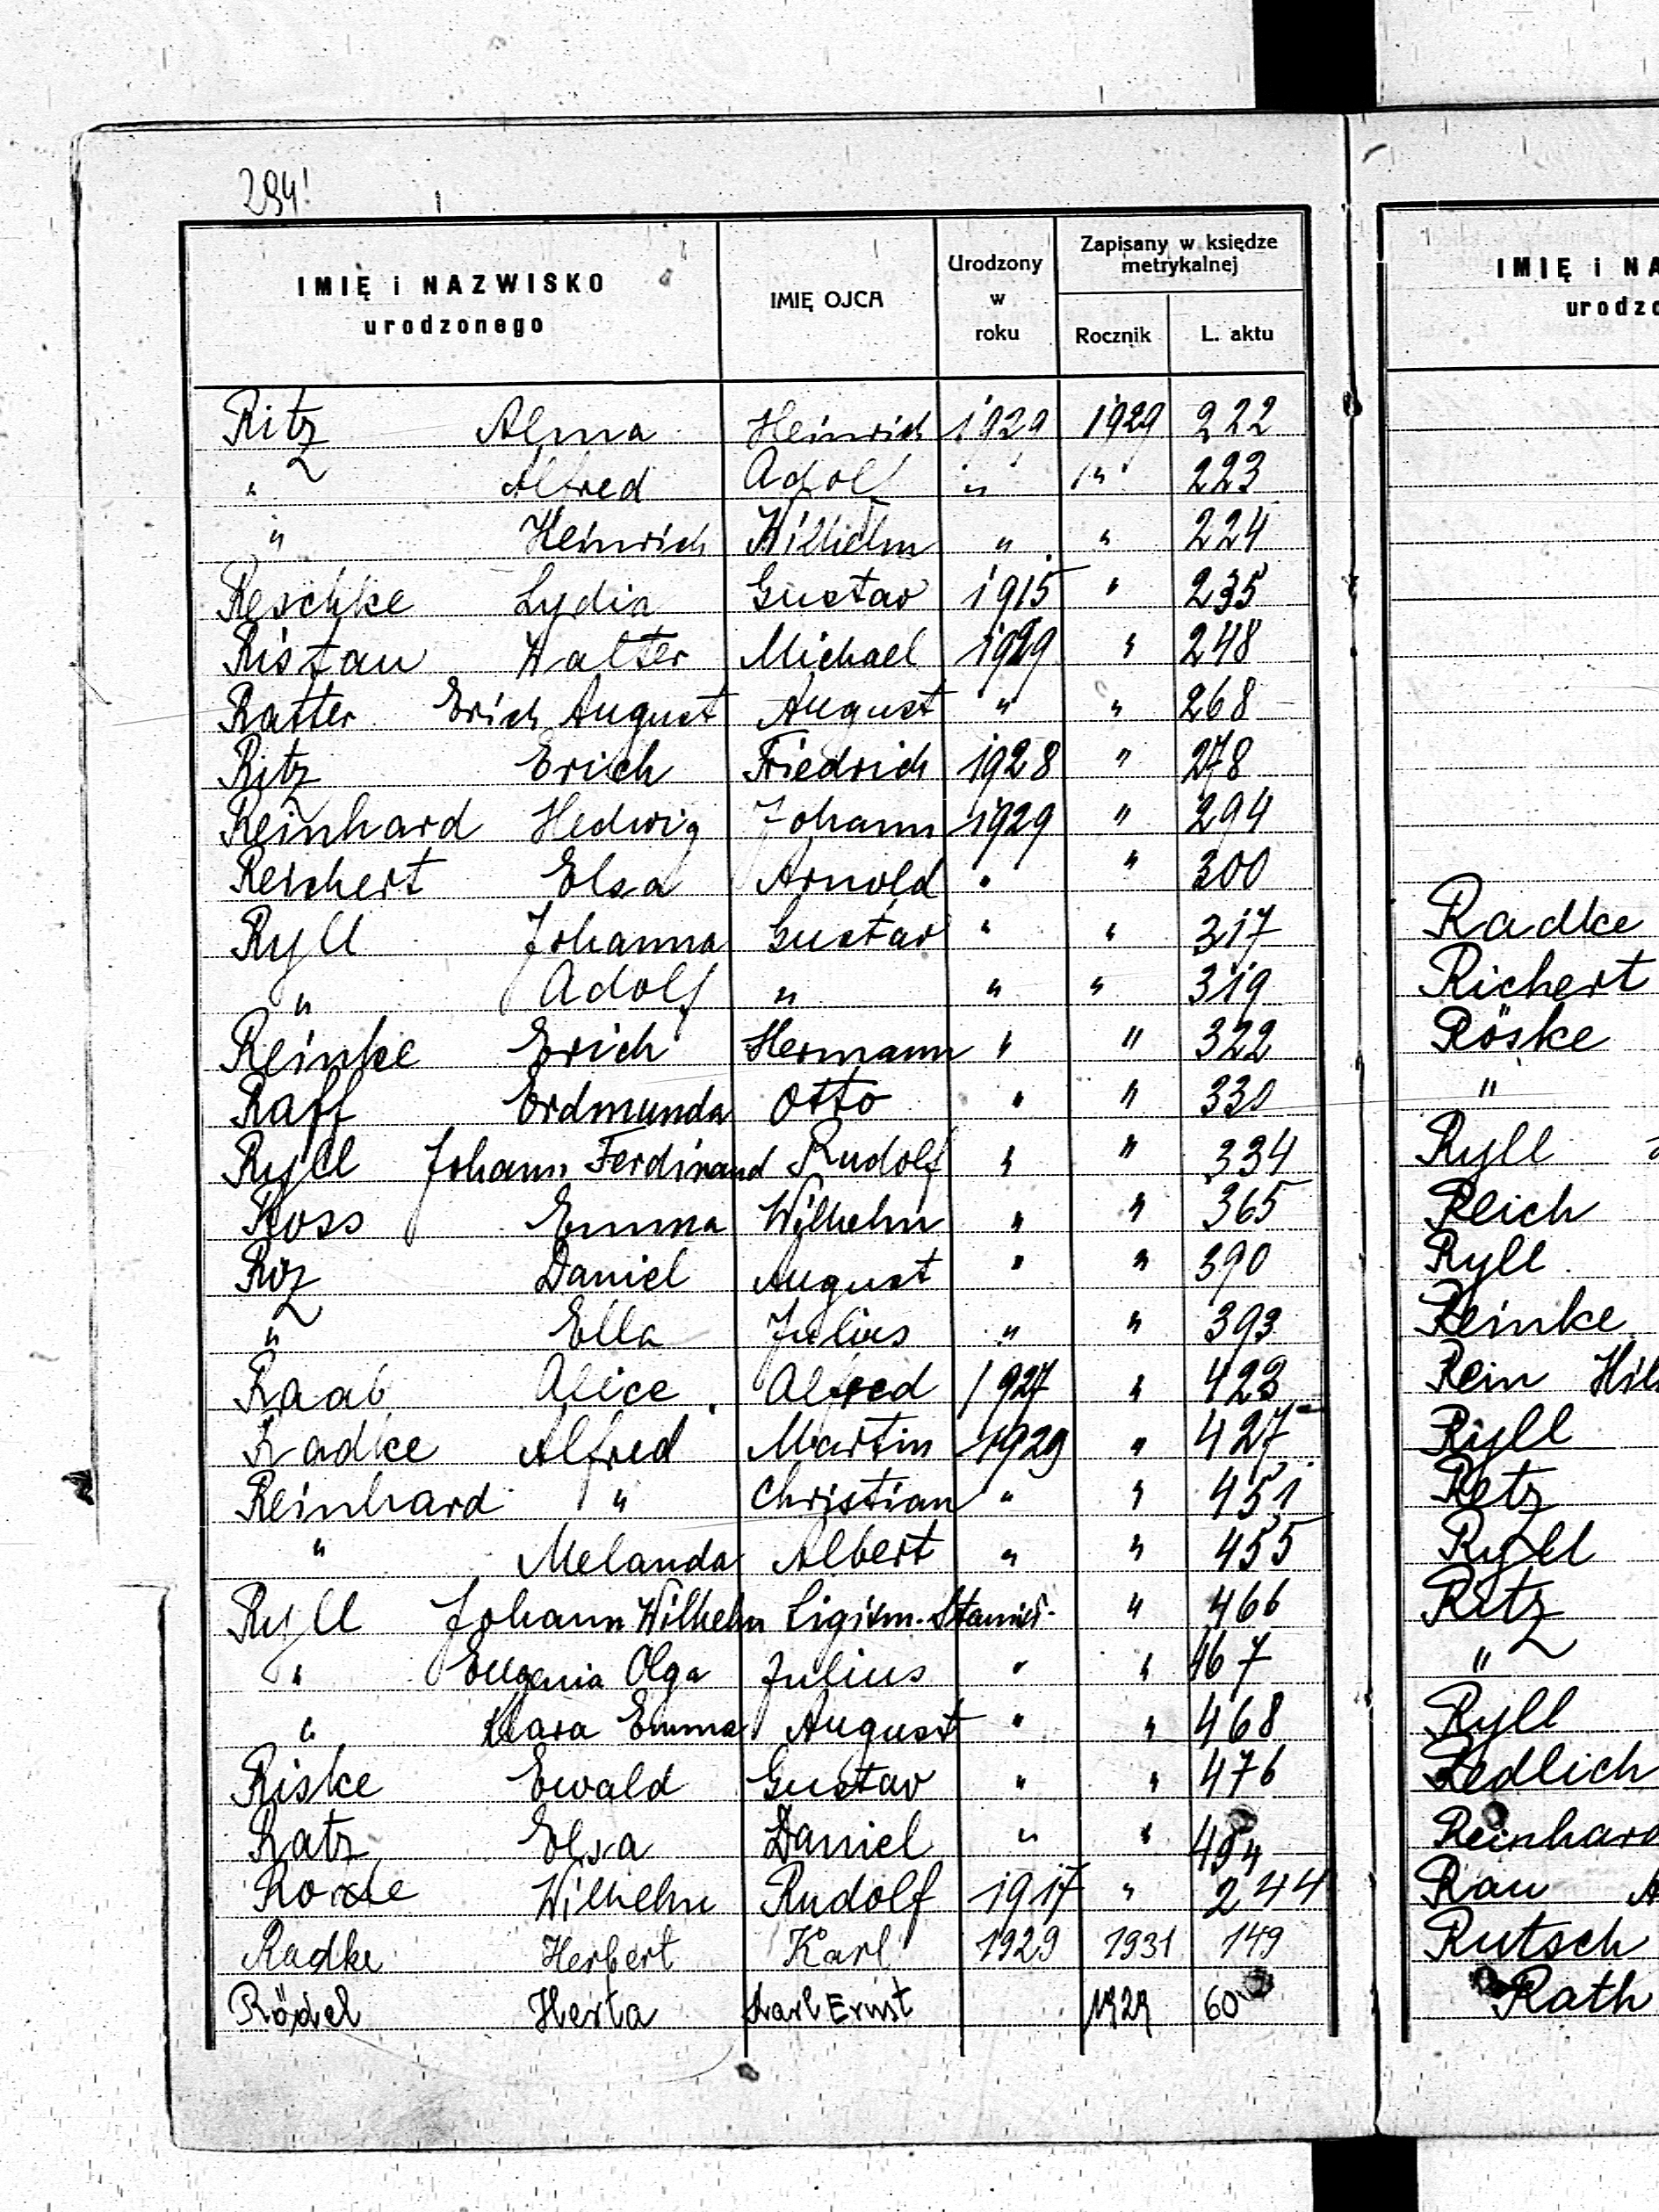 294!
IMIĘ i NAZWISKO
urodzonego
IMIĘ OJCA
Urodzony
w
roku
Zapisany w księdze
metrykalnej
Rocznik L. aktu
Ritz Alma Heinrich 1929 1929 222
" Alfred Adolf " " 223
" Heinrich Wilhelm " " 224
Reschke Lydia Gustav 1915 " 235
Ristau Walter Michael 1929 " 248
Ratter Erich August August " " 268
Ritz Erich Friedrich 1928 " 278
Reinhard Hedwig Johann 1929 " 294
Reichert Elsa Arnold " " 300
Ryll Johanna Gustav " " 317
" Adolf " " " 319
Reinke Erich Hermann " " 322
Raff Erdmunda Otto " " 330
Ryll Johann Ferdinand Rudolf " " 334
Ross Emma Wilhelm " " 365
Daniel August " " 390
" Ella Julius " " 393
Raab Alice Alfred 1927 " 423
Radke Alfred Martin 1929 " 427
Reinhard " Christian " " 451
" Melanda Albert " " 455
Ryll Johann Wilhelm Sigism.-Stanisl. " 466
" Eugenia Olga Julius " " 467
" Klara Emma August " " 468
Riske Ewald Gustav " " 476
Ratz Elsa Daniel " "
Wilhelm Rudolf 1917 " 244
Radke Herbert Karl 1929 1931 149
Rödel Herta Karl Ernst 1929 60
IMIĘ i NA
urodzo
Radke
Richert
Röske
"
Ryll
Reich
Ryll
Reinke
Rein Hil
Ryll
Retz
Ryll
Ritz
"
Ryll
Redlich
Reinhard
Rau A
Rutsch
Rath